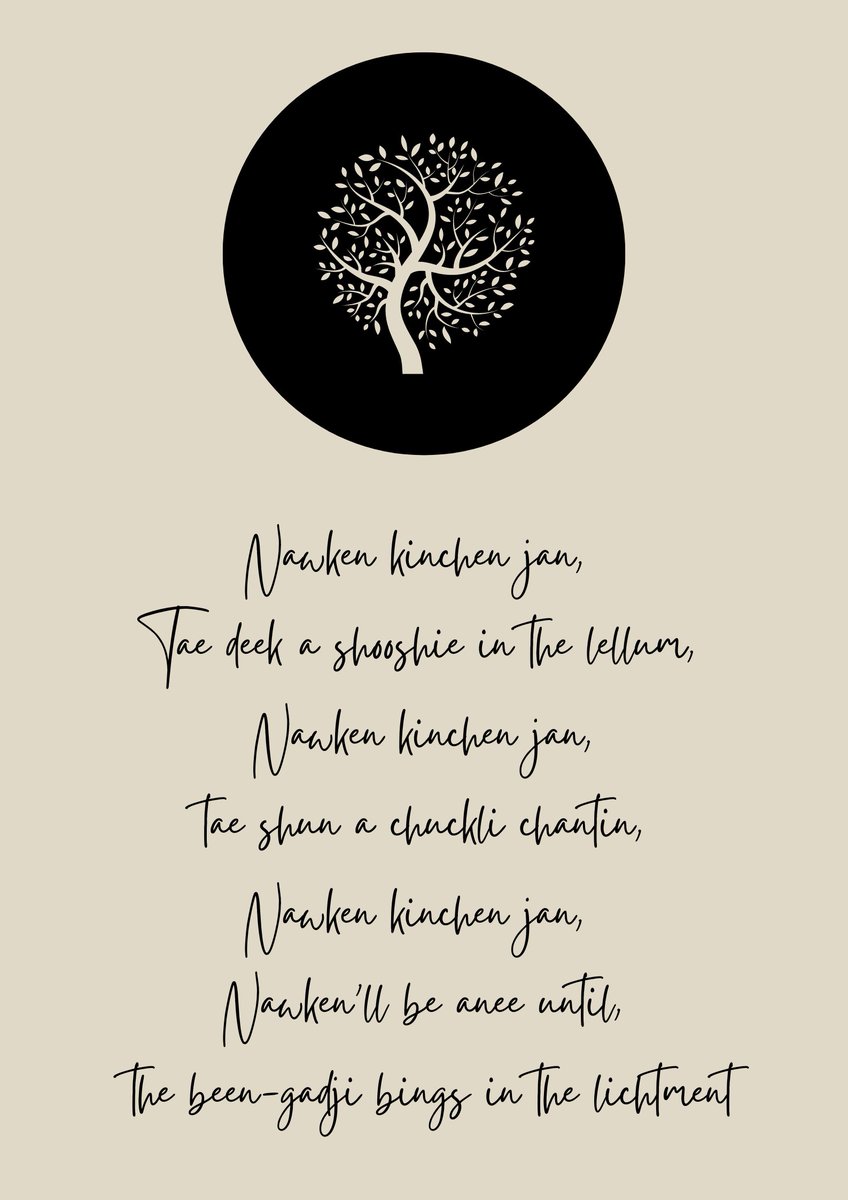 Nawken kinchen jan,
Tae deek a shooshie in the lellum,
Nawken kinchen jan,
tae shun a chuckli chantin,
Nawken kinchen jan,
Nawken'll be anee until,
the been-gadji bings in the lichtment